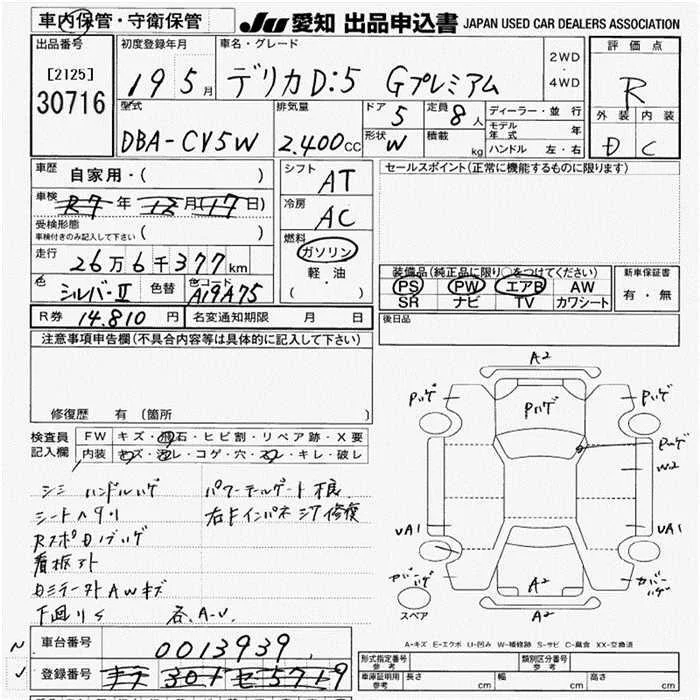 車内保管・守衛保管
JU 愛知 出品申込書 JAPAN USED CAR DEALERS ASSOCIATION
出品番号
[2125]
30716
初度登録年月
19 5月
車名・グレード
デリカD:5 Gプレミアム
2WD
・
4WD
評価点
R
外装 内装
D C
型式
DBA-CV5W
排気量
2.400cc
ドア 5
定員 8人
形状 W
積載 kg
ディーラー・並行
モデル年式 年
ハンドル 左・右
車歴 自家用・( )
車検 R7年 12月(17日)
受検形態
車検付きのみ記入して下さい ( )
走行 26万6千377km
色 シルバーII 色替 色コード A19A75
シフト AT
冷房 AC
燃料
ガソリン
軽油
( )
セールスポイント(正常に機能するものに限ります)
装備品(純正品に限り○をつけてください)
PS PW エアB AW
SR ナビ TV カワシート
新車保証書
有・無
R券 14.810円 名変通知期限 月 日
後日品
注意事項申告欄(不具合内容等は具体的に記入して下さい)
修復歴 有 (箇所 )
検査員
記入欄
FW キズ・飛石・ヒビ割・リペア跡・X要
内装 キズ・汚レ・コゲ・穴・スレ・キレ・破レ
シミ ハンドルハゲ パワーテールゲート不良
シートヘタリ
看板跡
下廻りS 各A・U
A2
Pハゲ
Pハゲ
Pハゲ
Pハゲ
W2
UA1
UA1
A2
カバーハゲ
カバーハゲ
スペア
A2
A-キズ E-エクボ U-凹み W-補修跡 S-サビ C-腐食 XX-交換済
車台番号 0013939
登録番号
形式指定番号
参考
類別区分番号
参考
車庫証明用
参考
長さ cm
幅 cm
高さ cm